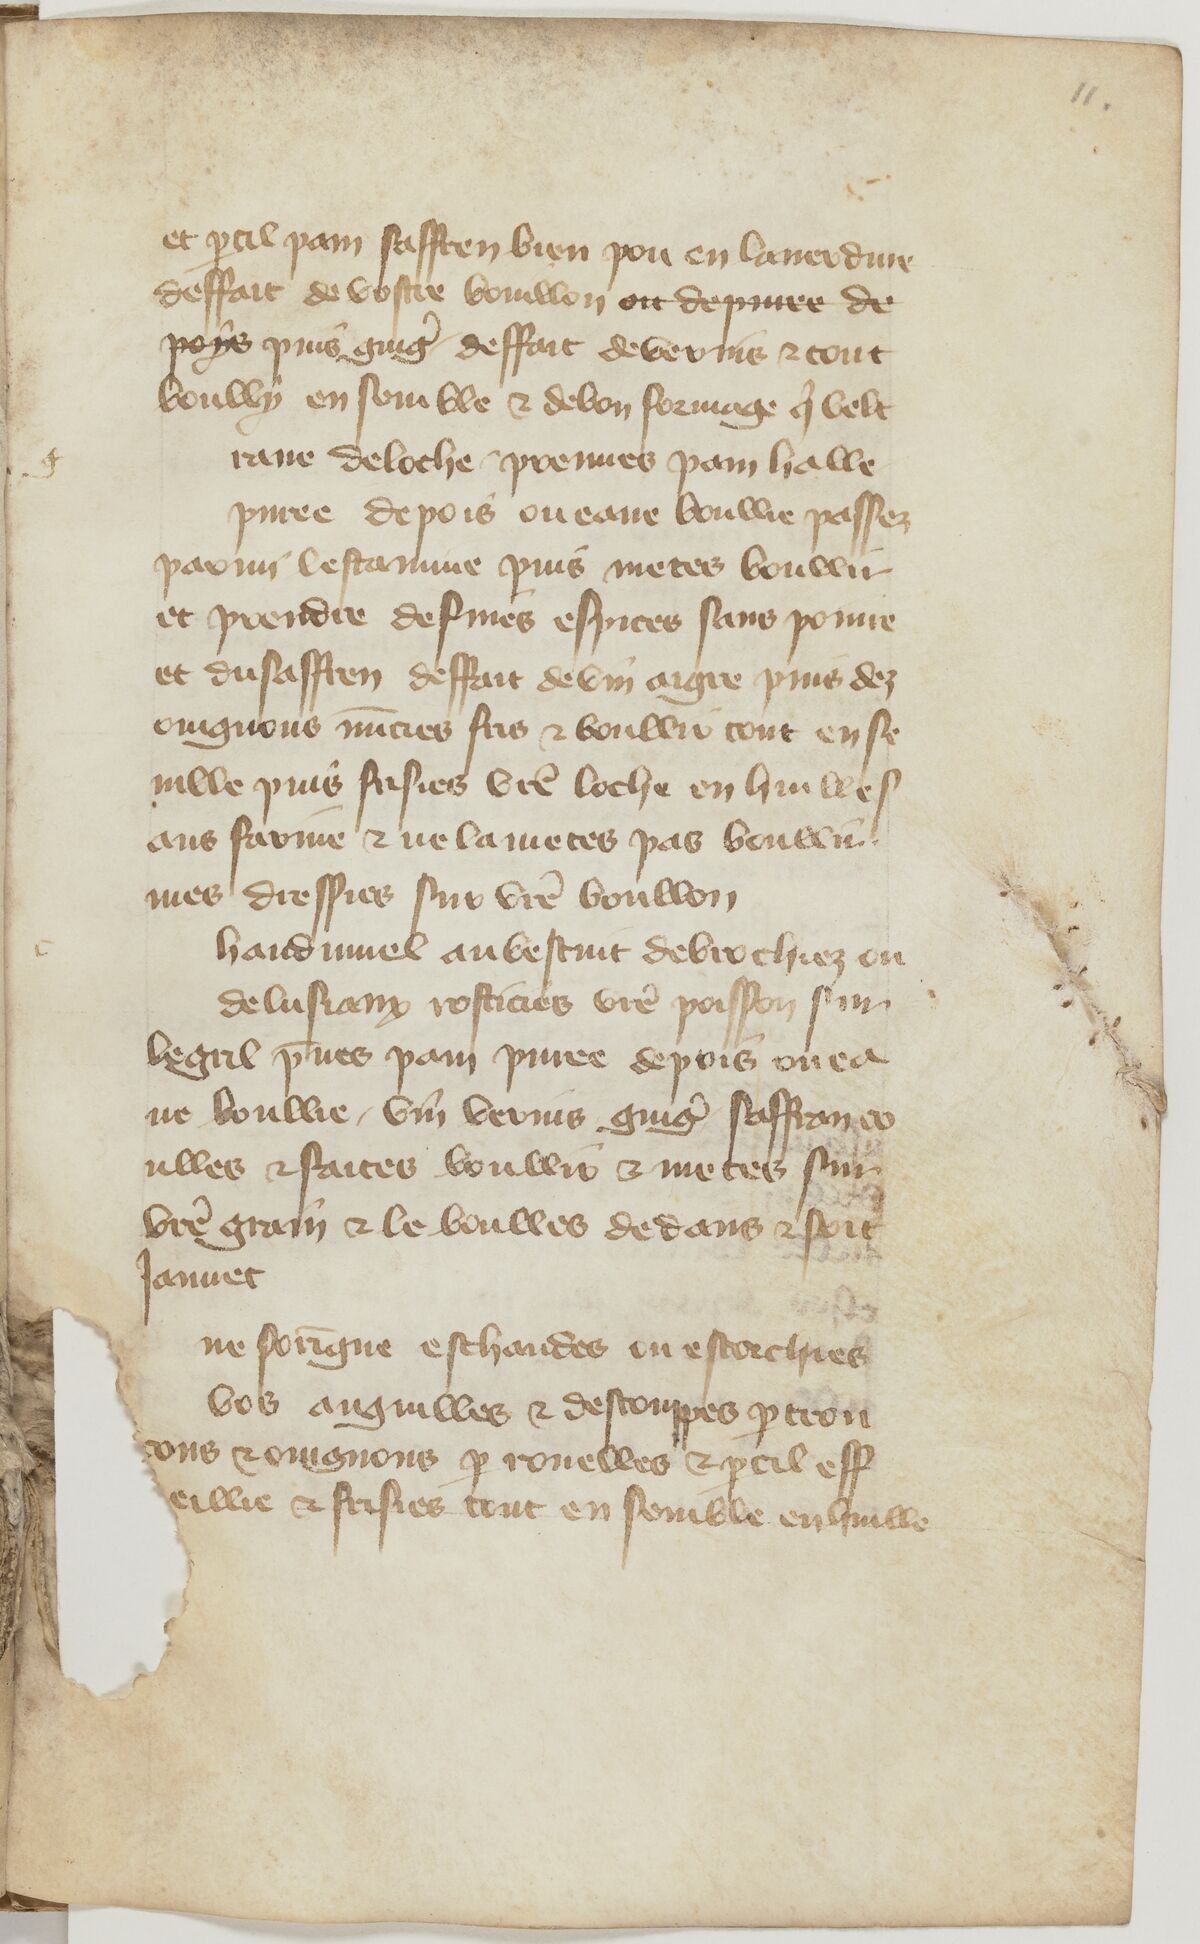 11.
et pcil pain saffren bien pou en lauerdure
deffait de vostre boullon ou de puree de
poys puis ging̉ deffait de verius ⁊ tout
boully en semble ⁊ de bon formage q̉ velt
g
raue de loche prennes pain halle
puree de pois ou eaue boullie passez
parmi lestamine puis metes boullir
et prendre de fines espices sans poiure
et du saffren deffait de vin aigre puis dez
oingnons miñcies fris ⁊ boullir tout en se
mlle puis frisies vr̃e loche en huilles
ans farine ⁊ ne la metes pas boullir
mes dressies sur vr̃e boullon
c
haudumel au bescuit de brochiez ou
de lusiaux rosticies vr̃e poisson sur
le gril p̃nes pain puree de pois ou ea
ue boullie vin verius ging̉ saffran co
ulles ⁊ faites boullir ⁊ metes sur
vr̃e grain ⁊ le boulles dedans ⁊ soit
Jaunet
ne soriñgue eschaudes ou escorchies
vos anguilles ⁊ descouppes p tron
cons ⁊ oingnons p rouelles ⁊ pcil eff
eillie ⁊ frisies tout en semble en huille